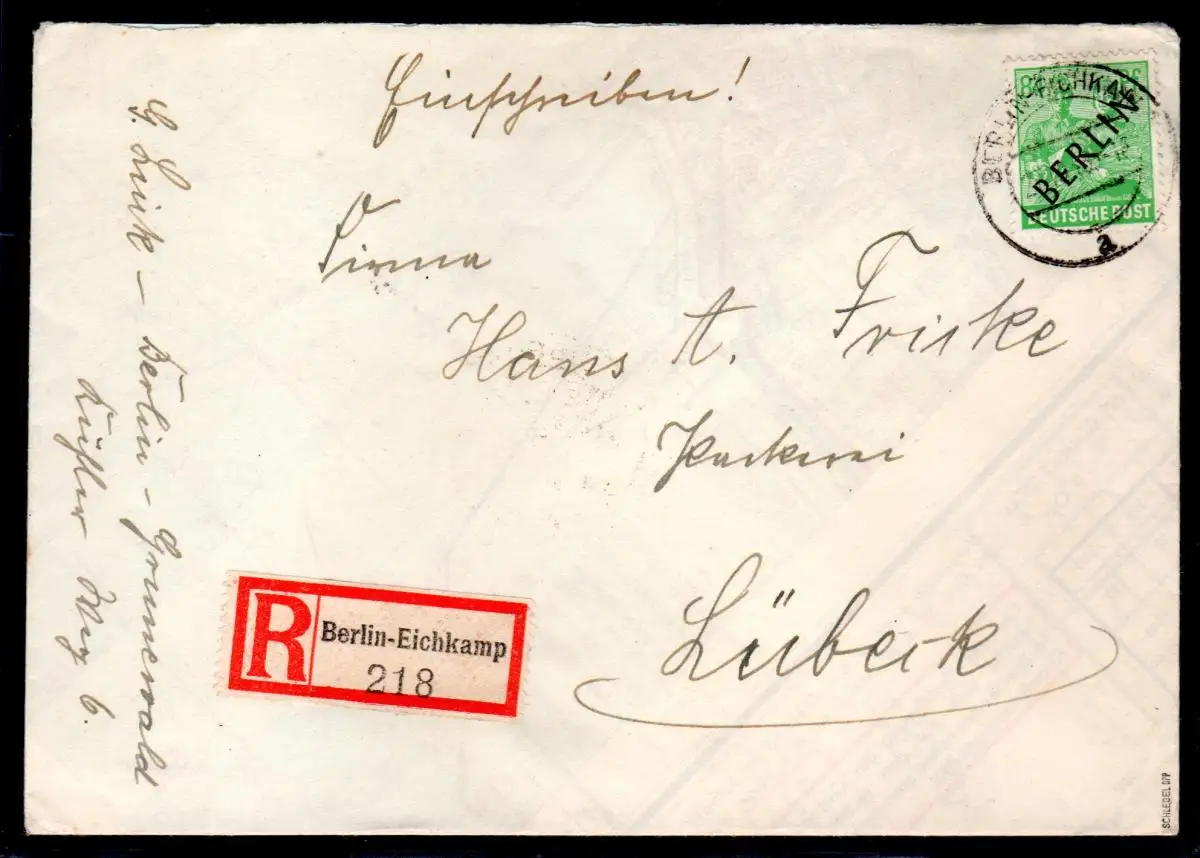 Einschreiben!
84
BERLIN
DEUTSCHE POST
BERLIN-EICHKAMP
a
Firma
Hans A. Fricke
Lübeck
R
Berlin-Eichkamp
218
Berlin-Grunewald
Weg 6.
SCHLEGEL BPP